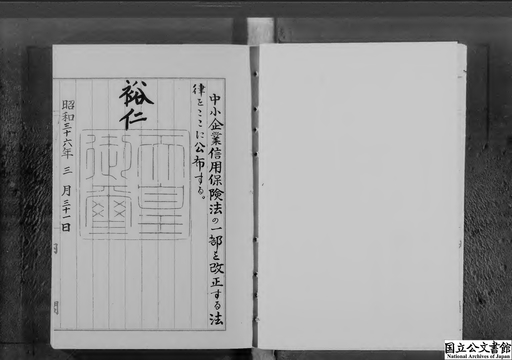 中小企業信用保険法の一部を改正する法
律をここに公布する。
裕仁
天皇
御璽
昭和三十六年三月三十一日
国立公文書館
National Archives of Japan